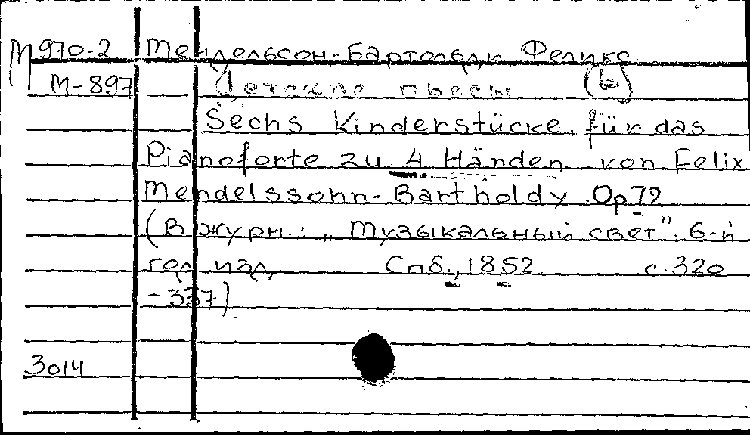 М 970-2 Мендельсон-Бартольди Феликс
М-897 Детские пьесы (6)
Sechs Kinderstücke für das
Pianoforte zu 4 Händen von Felix
Mendelssohn-Bartholdy Op 72
(В журн.: „Музыкальный свет". 6-й
год изд. Спб., 1852 с. 320
-337)
3014